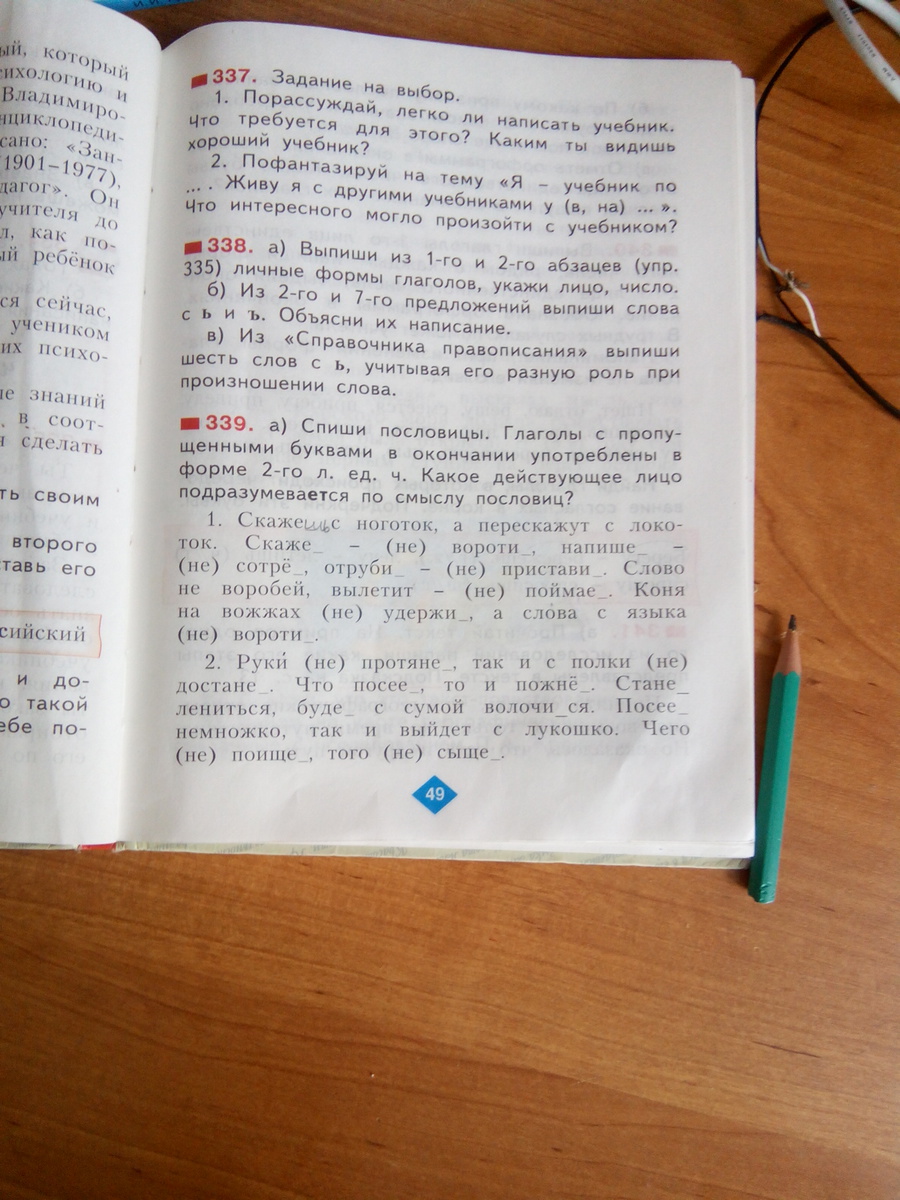 ый, который
сихологию и
Владимиро-
нциклопеди-
сано: «Зан-
(1901–1977),
дагог». Он
учителя до
л, как по-
ый ребёнок
ся сейчас,
учеником
их психо-
ие знаний
в соот-
я сделать
ть своим
второго
ставь его
сийский
и до-
о такой
ебе по-
337. Задание на выбор.
1. Порассуждай, легко ли написать учебник.
Что требуется для этого? Каким ты видишь
хороший учебник?
2. Пофантазируй на тему «Я – учебник по
... . Живу я с другими учебниками у (в, на) ... ».
Что интересного могло произойти с учебником?
338. а) Выпиши из 1-го и 2-го абзацев (упр.
335) личные формы глаголов, укажи лицо, число.
б) Из 2-го и 7-го предложений выпиши слова
с ь и ъ. Объясни их написание.
в) Из «Справочника правописания» выпиши
шесть слов с ь, учитывая его разную роль при
произношении слова.
339. а) Спиши пословицы. Глаголы с пропу-
щенными буквами в окончании употреблены в
форме 2-го л. ед. ч. Какое действующее лицо
подразумевается по смыслу пословиц?
1. Скажешь с ноготок, а перескажут с локо-
ток. Скаже_ – (не) вороти_, напише_ –
(не) сотрё_, отруби_ – (не) пристави_. Слово
не воробей, вылетит – (не) поймае_. Коня
на вожжах (не) удержи_, а сло́ва с языка
(не) вороти_.
2. Руки́ (не) протяне_, так и с полки (не)
достане_. Что посее_, то и пожнё_. Стане_
лениться, буде_ с сумой волочи_ся. Посее_
немножко, так и выйдет с лукошко. Чего
(не) поище_, того (не) сыще_.
49